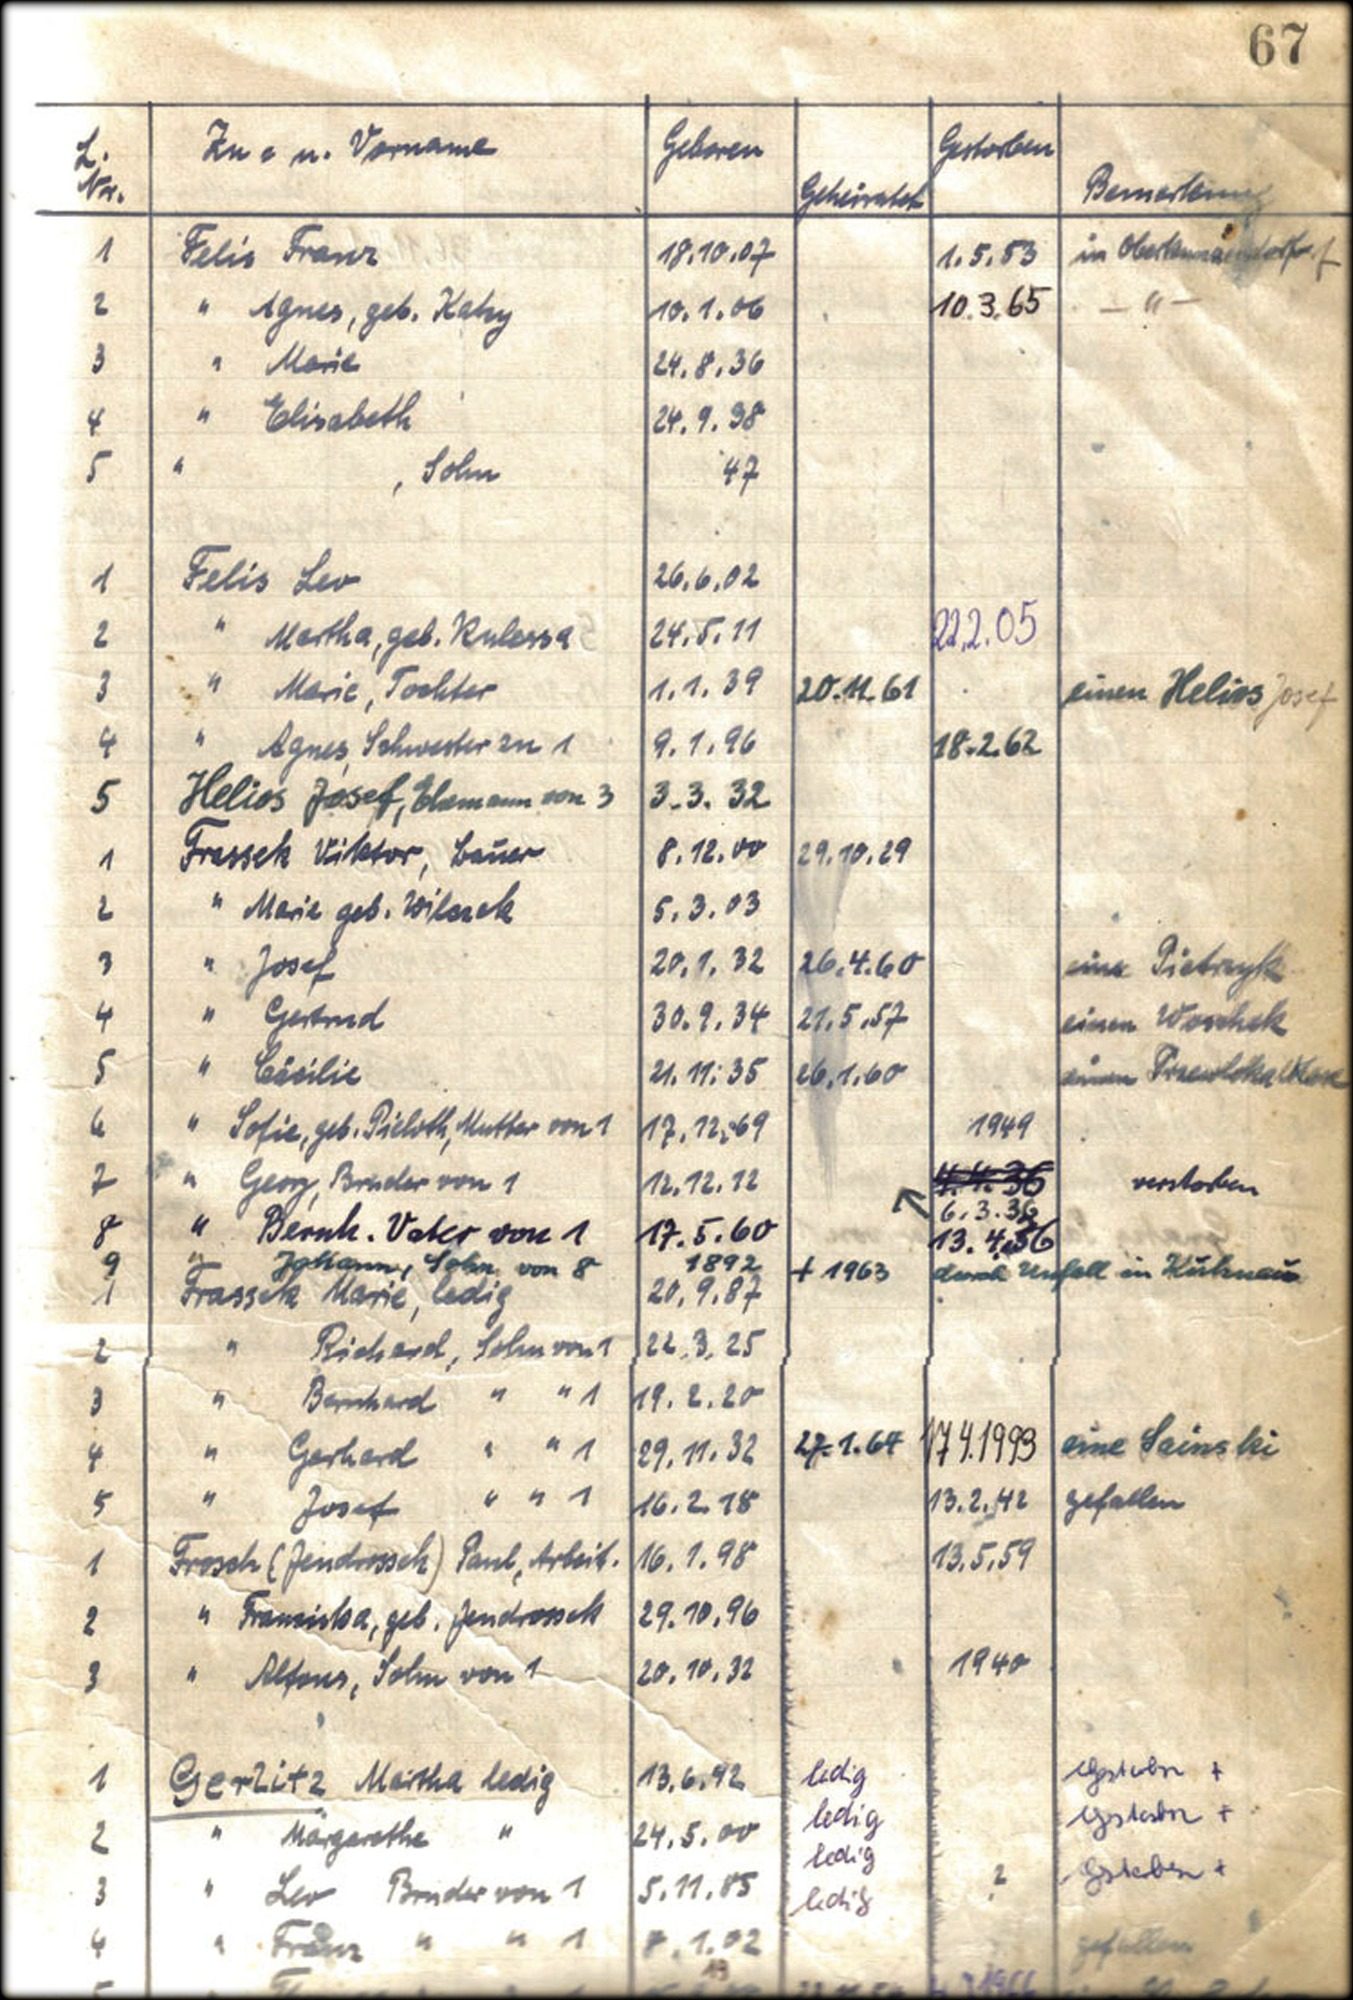 67
L. Nr. Zu- u. Vorname Geboren Geheiratet Gestorben Bemerkung
1 Felis Franz 18.10.07 1.5.53 in
2 " Agnes, geb. 10.1.06 10.3.65 – " –
3 " Marie 24.8.36
4 " Elisabeth 24.9.38
5 " , Sohn 47
1 Felis Leo 26.6.02
2 " Martha, geb. Kulessa 24.5.11 22.2.05
3 " Marie, Tochter 1.1.39 20.11.61 einen Helios Josef
4 " Agnes, Schwester zu 1 9.1.96 18.2.62
5 Helios Josef, Ehemann von 3 3.3.32
1 Frassek Viktor, Bauer 8.12.00 29.10.29
2 " Marie geb. Wilczek 5.3.03
3 " Josef 20.1.32 26.4.60 eine Pietrzyk
4 " Gertrud 30.9.34 21.5.57 einen Woschek
5 " Cäcilie 21.11.35 26.1.60 einen
6 " Sofie, geb. Pieloth, Mutter von 1 17.12.69 1949
7 " Georg, Bruder von 1 12.12.12 4.4.36 verstorben
6.3.36
8 " Bernh. Vater von 1 17.5.60 13.4.36
9 " Johann, Sohn von 8 1892 + 1963 durch Unfall in Kühnau
1 Frassek Marie, ledig 20.9.87
2 " Richard, Sohn von 1 22.3.25
3 " Bernhard " " 1 19.2.20
4 " Gerhard " " 1 29.11.32 27.1.64 17.4.1993 eine Sainski
5 " Josef " " 1 16.2.18 13.2.42 gefallen
1 Frosch (Jendrossek) Paul, Arbeit. 16.1.98 13.5.59
2 " Franziska, geb. Jendrossek 29.10.96
3 " Alfons, Sohn von 1 20.10.32 1940
1 Gerlitz Martha ledig 13.6.92 ledig Gestorben +
2 " Margarethe " 24.5.00 ledig Gestorben +
3 " Leo Bruder von 1 5.11.85 ledig ? Gestorben +
ledig
4 " Franz " " 1 7.1.02 gefallen